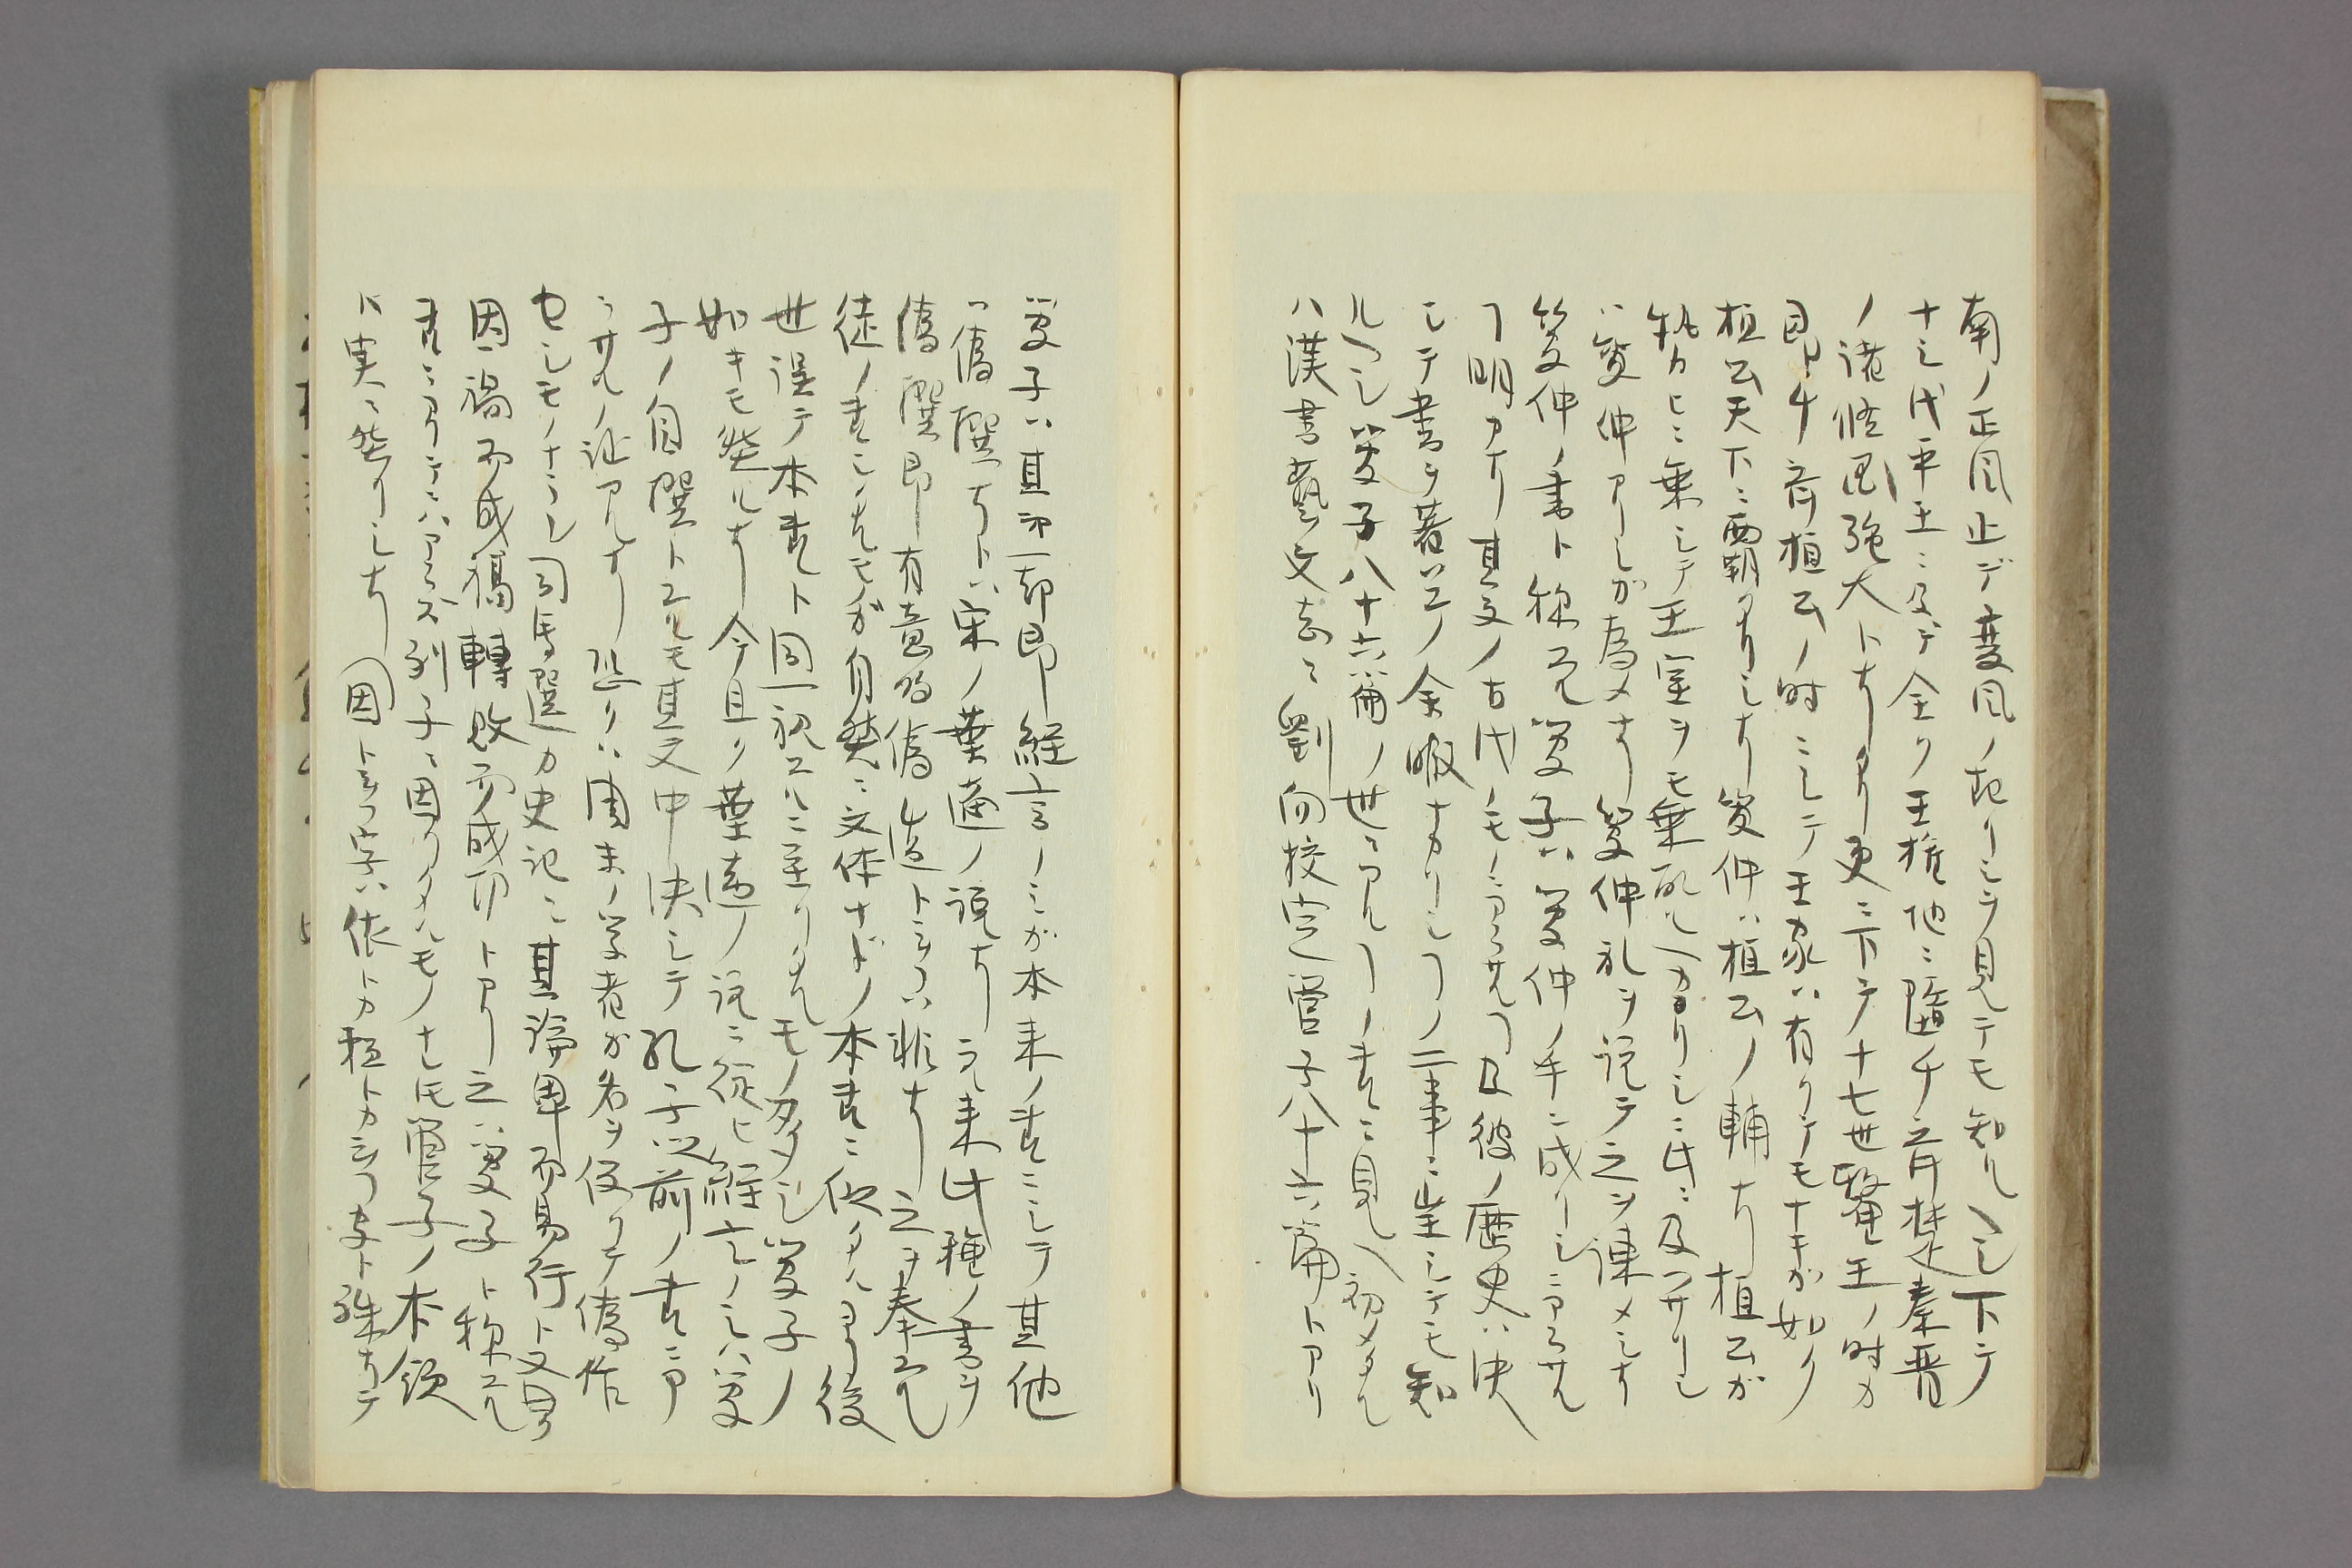 南ノ正風止デ変風ノ起リシヲ見テモ知ルヘシ下テ
十三代平王ニ及デ全ク王権地ニ墮チ齊楚秦晋
ノ諸侯国強大トナリ更ニ下テ十七世釐王ノ時カ
即チ齊桓公ノ時ニシテ王家ハ有リテモナキガ如ク
桓公天下ニ覇タリシナリ管仲ハ桓公ノ輔ナリ桓公ガ
勢カヒニ乗シテ王室ヲモ乗取ルヘカリシニ此ニ及ハサリシ
ハ管仲アリシガ為メナリ管仲礼ヲ説テ之ヲ諌メシナリ
管仲ノ書ト称スル管子ハ管仲ノ手ニ成リシニアラサル
ヿ明カナリ其文ノ古代ノモノニアラサルヿ及彼ノ歴史ハ決
シテ書ヲ著スノ余暇ナカリシヿノ二事ニ止シテモ知
ルヘシ管子八十六篇ノ世ニアルヿノ書ニ見ヘ初メタル
ハ漢書藝文志ニ劉向校定管子八十六篇トアリ
管子ハ其第一部即経言ノミガ本来ノ書ニシテ其他
ハ偽撰ナリトハ宋ノ葉適ノ説ナリ元来此種ノ書ヲ
偽撰即有意的偽造ト云フハ非ナリ之ヲ奉スル
徒ノ書シタルモノガ自然ニ文体ナドノ本書ニ似タルヨリ後
世誤テ本書ト同一視スルニ至リタルモノ多シ管子ノ
如キモ然ルナリ今且ク葉適ノ説ニ従ヒ経言ノミハ管
子ノ自撰トスルモ其文中決シテ孔子以前ノ書ニア
ラサルノ証アルナリ恐クハ周末ノ学者ガ名ヲ仮リテ偽作
セシモノナラン司馬遷カ史記ニ其論卑而易行ト又曰ク
因禍而成福轉敗而成功トアリ之ハ管子ト称スル
書ニアリテハアラズ列子ニ因リタルモノナレ氏管子ノ本領
ハ実ニ然リシナリ因ト云フ字ハ依トカ拠トカ云フ字ト殊ナリテ